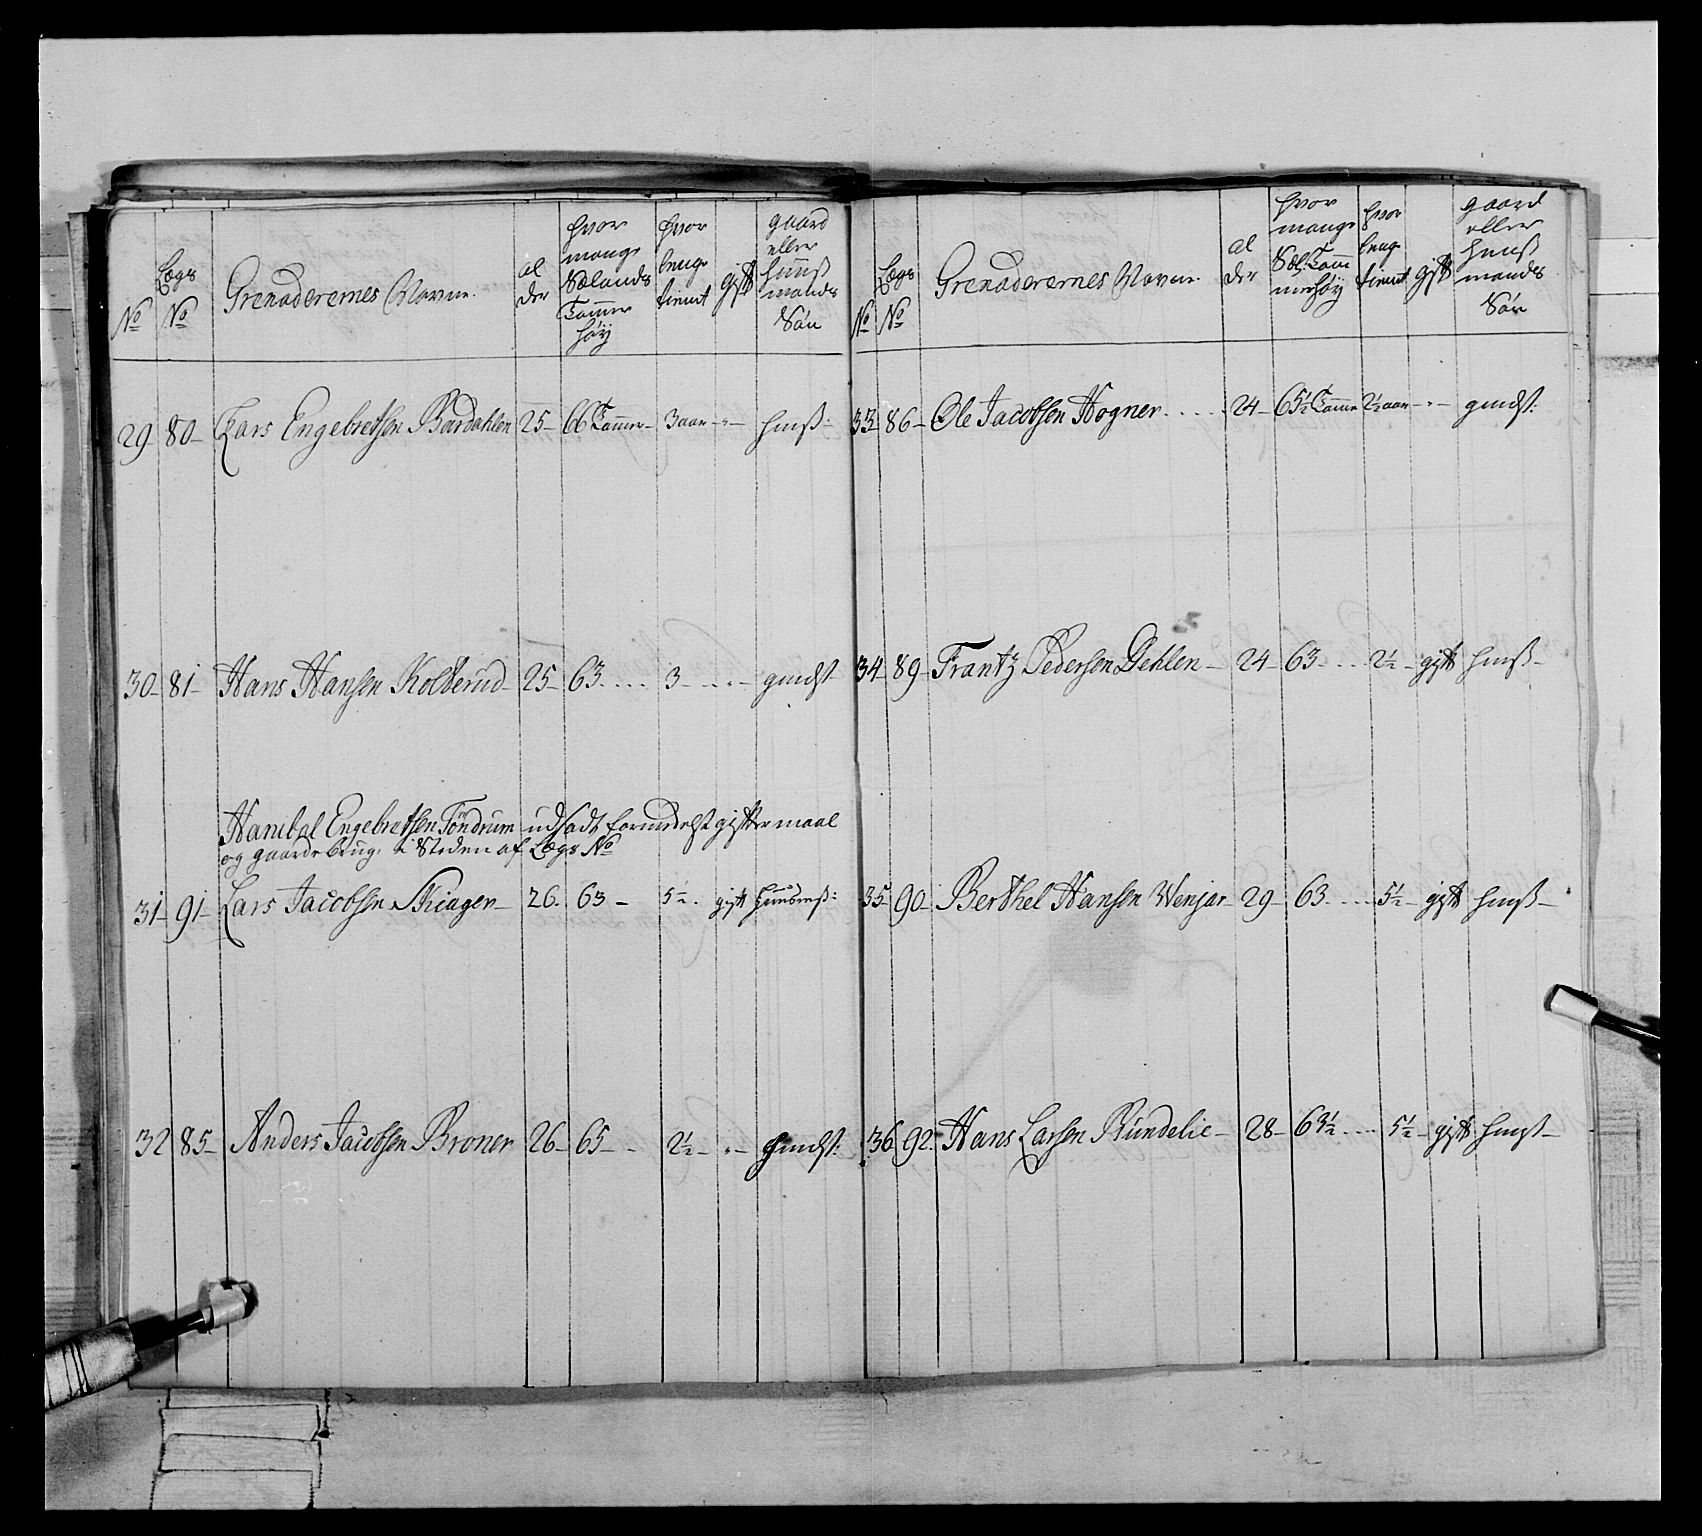 No
Lægs No
Grenaderernes Navne
al der
hvor mange Sælands Tommer høy
hvor lenge tient
gift
gaard eller huuß mands Søn
29 80 Lars Engebretsen Bardahlen 25 66 Tommer 3 aar - hmß:
30 81 Hans Hansen Kolberud 25 63 3 - gmdst
Hanibal Engebretsen Töndrum udsadt formedelst giftermaal
og gaardebrug, i Steden af Lægs No
31 91 Lars Jacobsen 26 63 5½ gift
32 85 Anders Jacobsen Broner 26 65 2½ - gmdst:
No
Lægs No
Grenaderernes Navne
al der
hvor mange Sæl: Tom merhøy
hvor leng tient
gift
gaard eller huuß mands Søn
33 86 Ole Jacobsen Hogner 24 65½ Tomme 2½ aar - gmdst:
34 89 Frantz Pedersen Gehlen 24 63 2½ gift hmß
35 90 Berthel Hansen Wenjar 29 63 5½ gift hmß
36 92 Hans Larsen Rundelie 28 63½ 5½ gift hmst